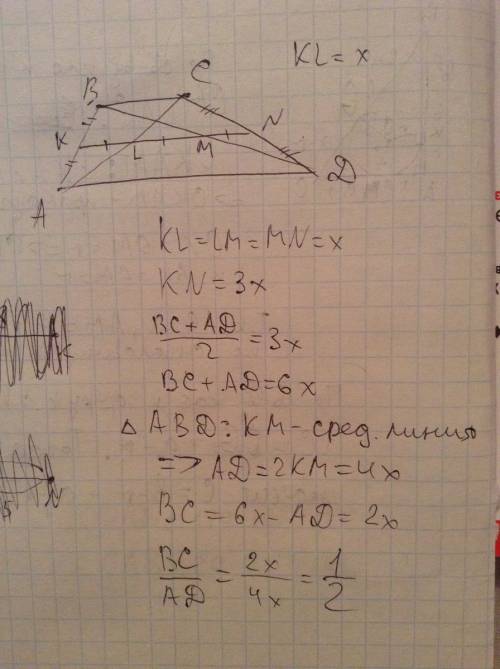 KL = x
B
C
K
L
M
N
A
D
KL = LM = MN = x
KN = 3x
BC + AD / 2 = 3x
BC + AD = 6x
△ ABD: KM - сред. линия
=> AD = 2KM = 4x
BC = 6x - AD = 2x
BC / AD = 2x / 4x = 1 / 2